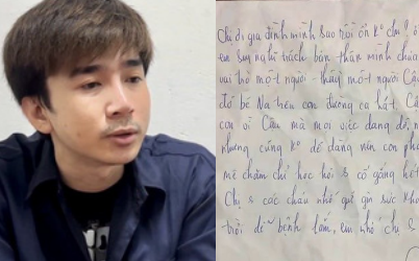 Chị ơi gia đình mình sao rồi ổn ko chị?
em suy nghĩ trách bản thân mình chưa
vai trò một người thầy một người Cậu
đỡ bé Na trên con đường ca hát. Cá
con vì Cậu mà mọi việc dang dở,
nhưng cũng ko dễ dàng nên con phả
mẽ chăm chỉ học hỏi & cố gắng hết
Chị & các cháu nhớ giữ gìn sức khỏ
trời dễ bệnh lắm, em nhớ chị &